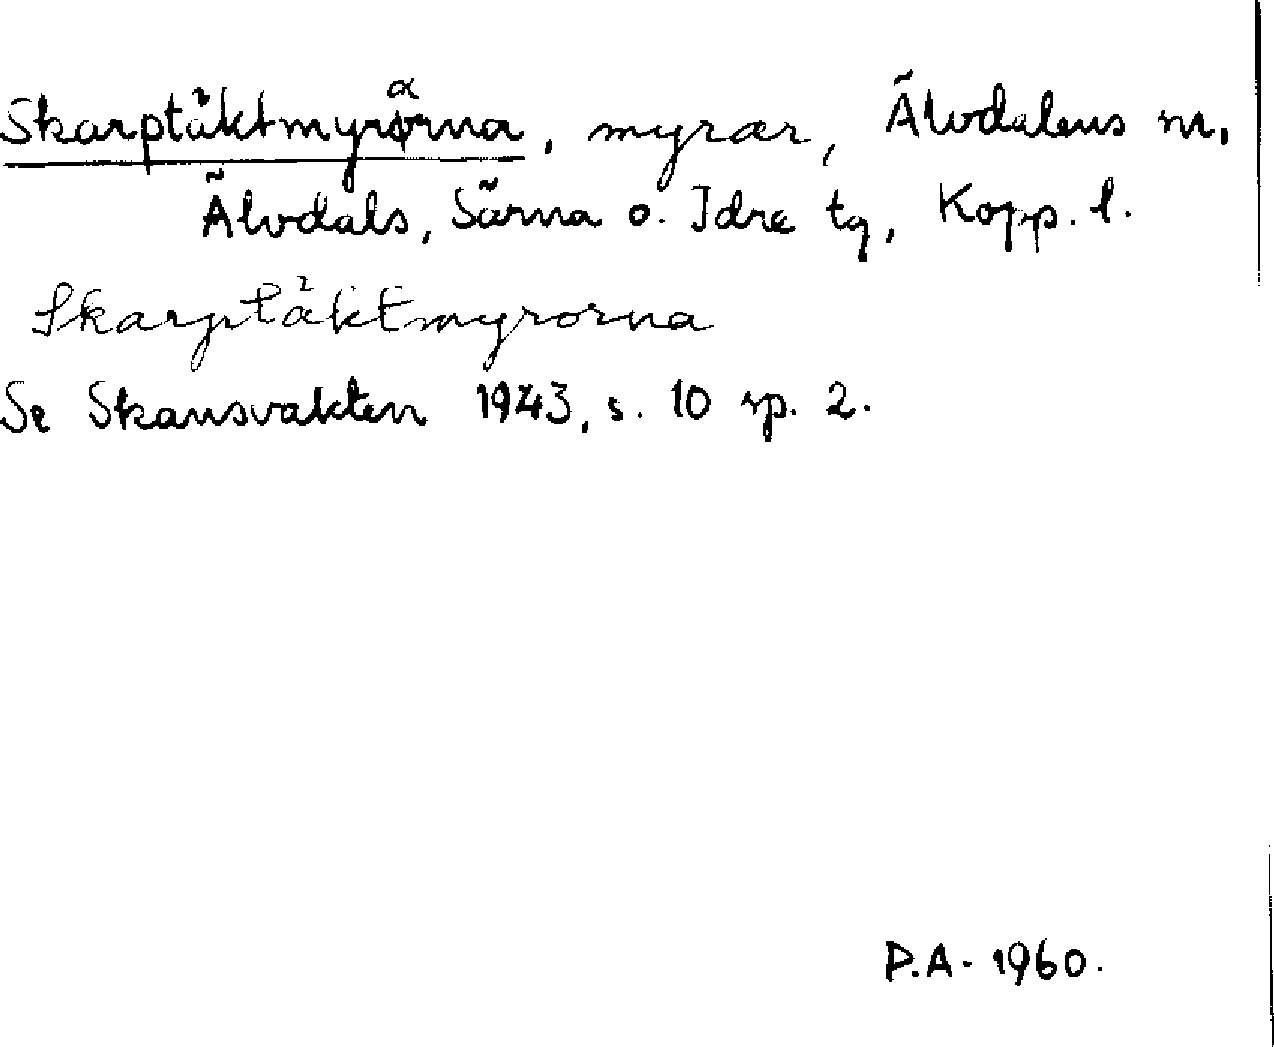 Skarptåktmyrarna, myrar, Älvdalens sn,
Älvdals, Särna o. Idre tg, Kopp. l.
Skarptåktmyrorna
Se Skansvakten 1943, s. 10 sp. 2.
P.A. 1960.